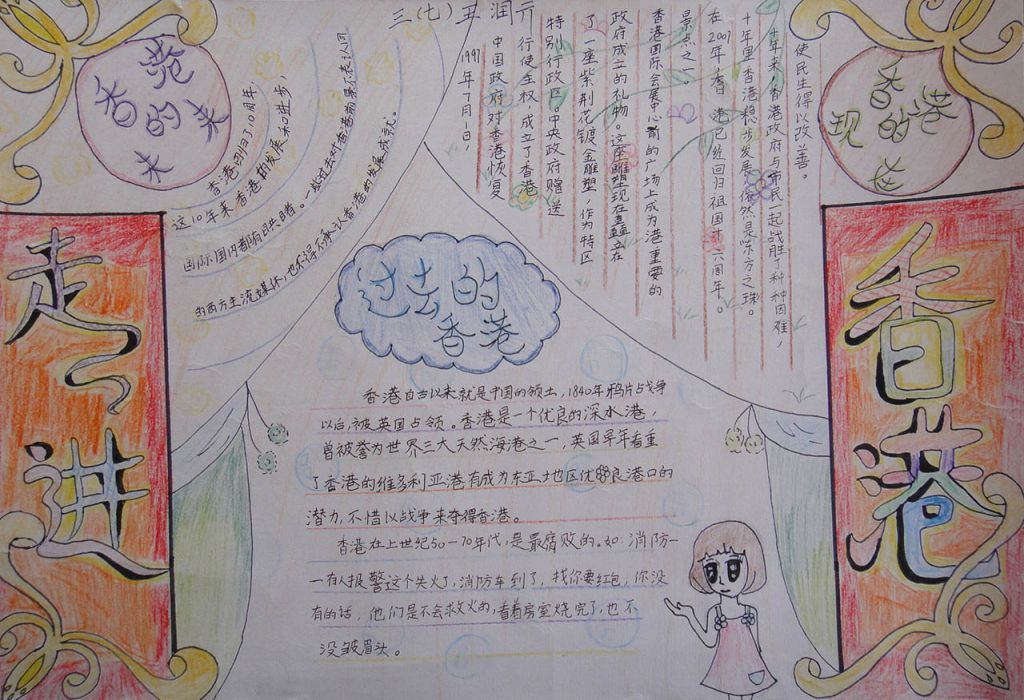 三(七)王润亓
走进
香港
香港的未来
香港回归了10周年,
这10年来香港的发展和进步,
国际国内都有目共睹。一些过去对香港前景不表认同
的西方主流媒体,也不得不承认香港的发展成就。
1997年7月1日,
中国政府对香港恢复
行使主权,成立了香港
特别行政区。中央政府赠送
了一座紫荆花镀金雕塑,作为特区
政府成立的礼物。这座雕塑现在矗立在
香港国际会展中心新的广场上成为港重要的
景点之一
在2007年,香港已经回归祖国十六周年。
十年里香港稳步发展,依然是东方之珠。
十年来,香港政府与市民一起战胜了种种困难,
使民生得以改善。
香港的现在
过去的香港
香港自古以来就是中国的领土,1840年鸦片占战争
以后,被英国占领。香港是一个优良的深水港,
曾被誉为世界三大天然海港之一,英国早年看重
了香港的维多利亚港有成为东亚地区优良港口的
潜力,不惜以战争来夺得香港。
香港在上世纪50一70年代,是最腐败的。如:消防一
一有人报警这个失火了,消防车到了,找你要红包,你没
有的话,他们是不会救火的,看着房室烧完了,也不
没皱眉头。